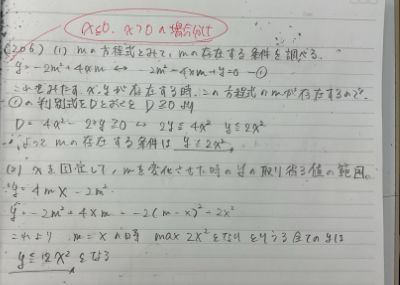 x≦0、x>0の場合分け
(206) (1) mの方程式とみて、mの存在する条件を調べる。
y=-2m²+4xm ⇔ 2m²-4xm+y=0 -①
これをみたす、x,yが存在する時、この方程式のmが存在するので
①の判別式をDとおくと D≧0より
D= 4x²-2y≧0 ⇔ 2y≦4x² y≦2x²
∴よって mの存在する条件は y≦2x²
(2) xを固定して、mを変化させた時のyの取り得る値の範囲。
y=4mx-2m²
y=-2m²+4xm=-2(m-x)²+2x²
これより m=xの時 max 2x²をとり とりうる全てのyは
y≦2x²となる